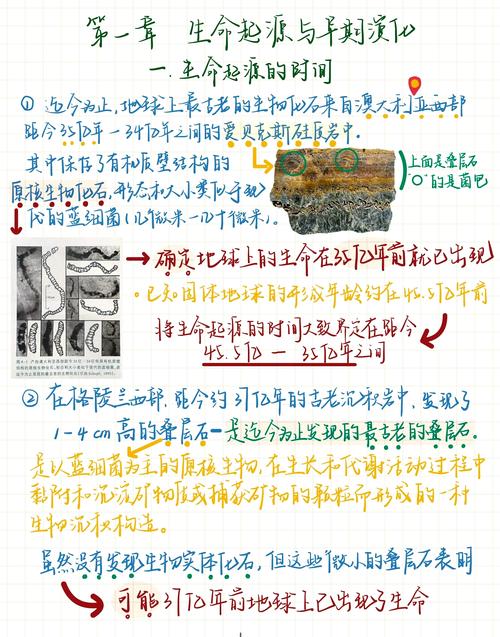 第一章 生命起源与早期演化
一.生命起源的时间
① 迄今为止,地球上最古老的生物化石来自澳大利亚西部
距今35亿年—34亿年之间的爱贝克斯硅质岩中.
其中保存了有机质壁结构的
原核生物化石,形态和大小类似于现
代的蓝细菌(几微米—几十微米).
上面是叠层石
"○"的是菌巴
→确定地球上的生命在35亿年前就已出现
。已知固体地球的形成年龄约在45.5亿年前
将生命起源的时间大致界定在距今
45.5亿 — 35亿年之间
② 在格陵兰西部,距今约37亿年的古老沉积岩中,发现了
1-4cm高的叠层石—是迄今为止发现的最古老的叠层石.
是以蓝细菌为主的原核生物,在生长和代谢活动过程中
黏附和沉淀矿物质或捕获矿物的颗粒而形成的一种
生物沉积构造。
虽然没有发现生物实体化石,但这些微小的叠层石表明
可能37亿年前地球上已出现了生命